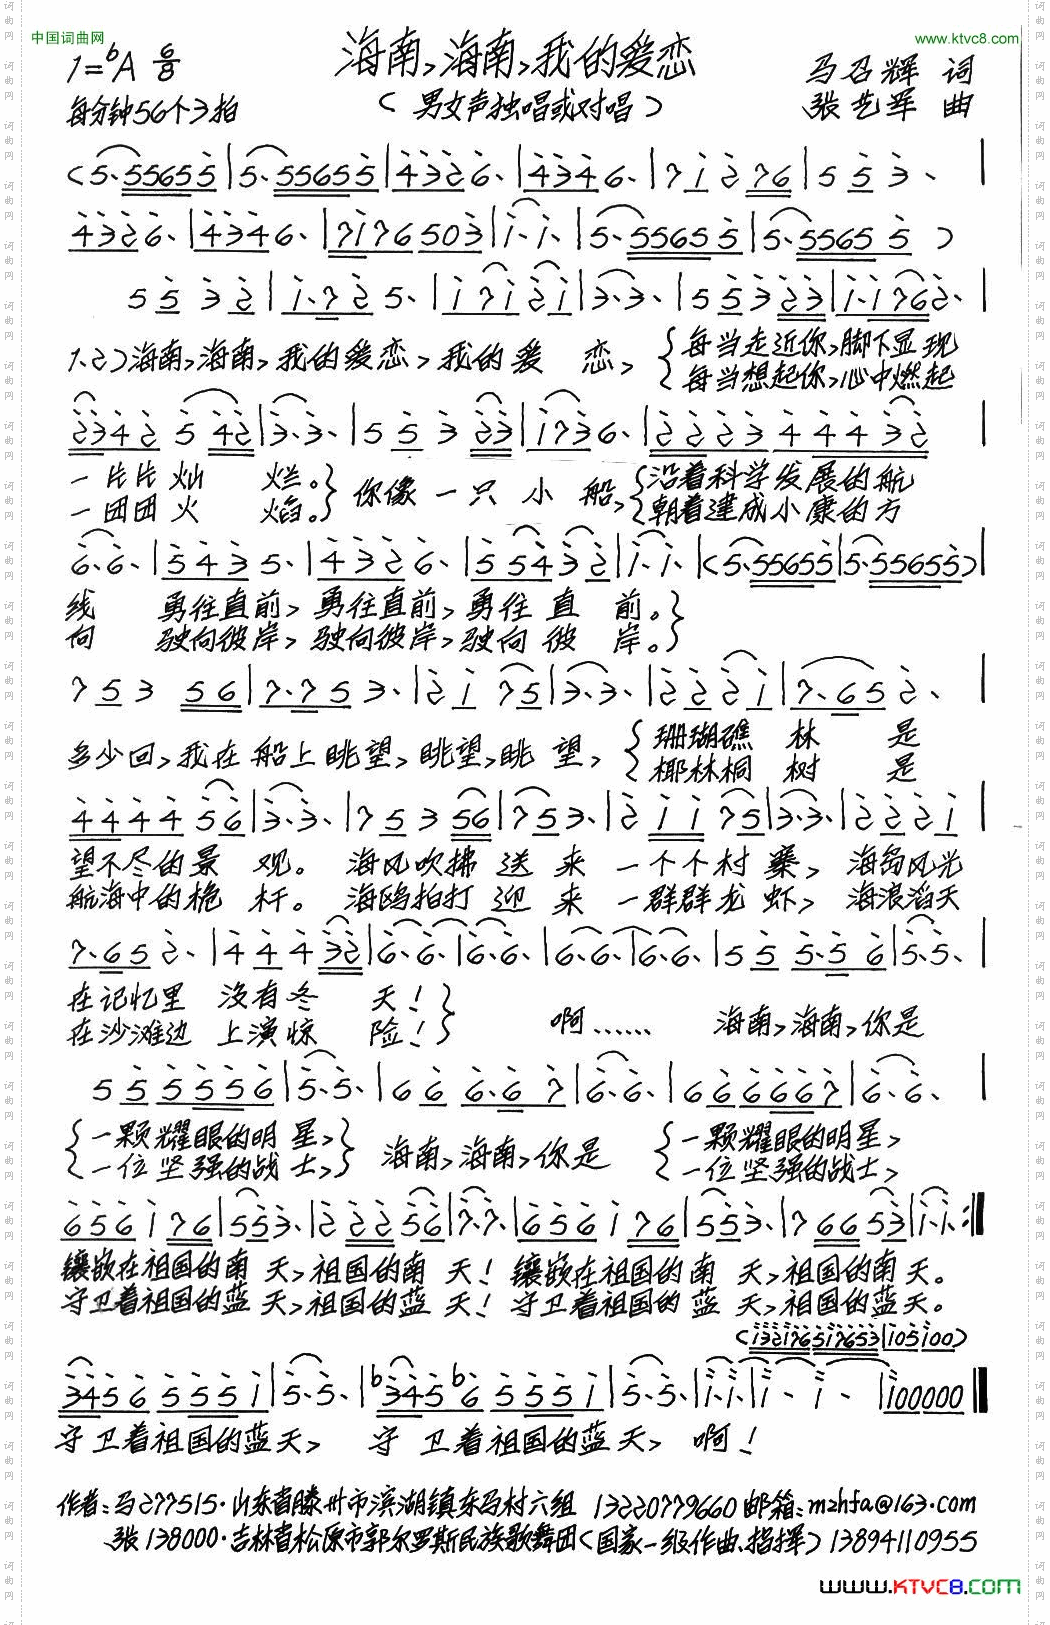 中国词曲网
www.ktvc8.com
海南,海南,我的爱恋
1=bA 6/8
马召辉 词
每分钟56个3拍
(男女声独唱或对唱)
张艺军 曲
(5·55655|5·55655|4326·|4346·|71276|553·
4326·|4346·|7176503|1·1·|5·55655|5·55655)
5532|1·725·|17121|3·3·|55323|1·1762·
1.2)海南,海南,我的爱恋,我的爱 恋,
每当走近你,脚下显现
每当想起你,心中燃起
2342542|3·3·|55323|1736·|222344432
一片片灿 烂。
一团团火 焰。
你像一只小船,
沿着科学发展的航
朝着建成小康的方
6·6·|5435·|4326·|55432|1·1·|(5·55655|5·55655)|
线 勇往直前,勇往直前,勇往直 前。
向 驶向彼岸,驶向彼岸,驶向彼 岸。
75356|7·753·|2175|3·3·|2221|7·652·
多少回,我在船上眺望,眺望,眺望,
珊瑚礁 林 是
椰林桐 树 是
444456|3·3·|75356|753·|21175|3·3·|2221
望不尽的景 观。 海风吹拂送来一个个村寨, 海岛风光
航海中的桅 杆。 海鸥拍打迎来一群群龙虾, 海浪滔天
7·652·|44432|6·6·|6·6·|6·6·|6·6·|555·56|5·5·
在记忆里 没有冬 天!
在沙滩边 上演惊 险!
啊…… 海南,海南,你是
555556|5·5·|666·67|6·6·|666667|6·6·
一颗耀眼的明星,
一位坚强的战士,
海南,海南,你是
一颗耀眼的明星,
一位坚强的战士,
656176|553·|22256|7·7·|656176|553·|76653|1·1·:
镶嵌在祖国的南 天,祖国的南 天! 镶嵌在祖国的南 天,祖国的南天。
守卫着祖国的蓝 天,祖国的蓝 天! 守卫着祖国的蓝 天,祖国的蓝天。
(132176517653|105100)
34565551|5·5·|b345b65551|5·5·|1·1·|1·1·|100000
守卫着祖国的蓝天, 守卫着祖国的蓝天, 啊!
作者:马277515·山东省滕州市滨湖镇东马村六组 13220779660邮箱:mzhfa@163.com
张138000·吉林省松原市郭尔罗斯民族歌舞团(国家一级作曲、指挥)13894110955
www.KTVC8.com